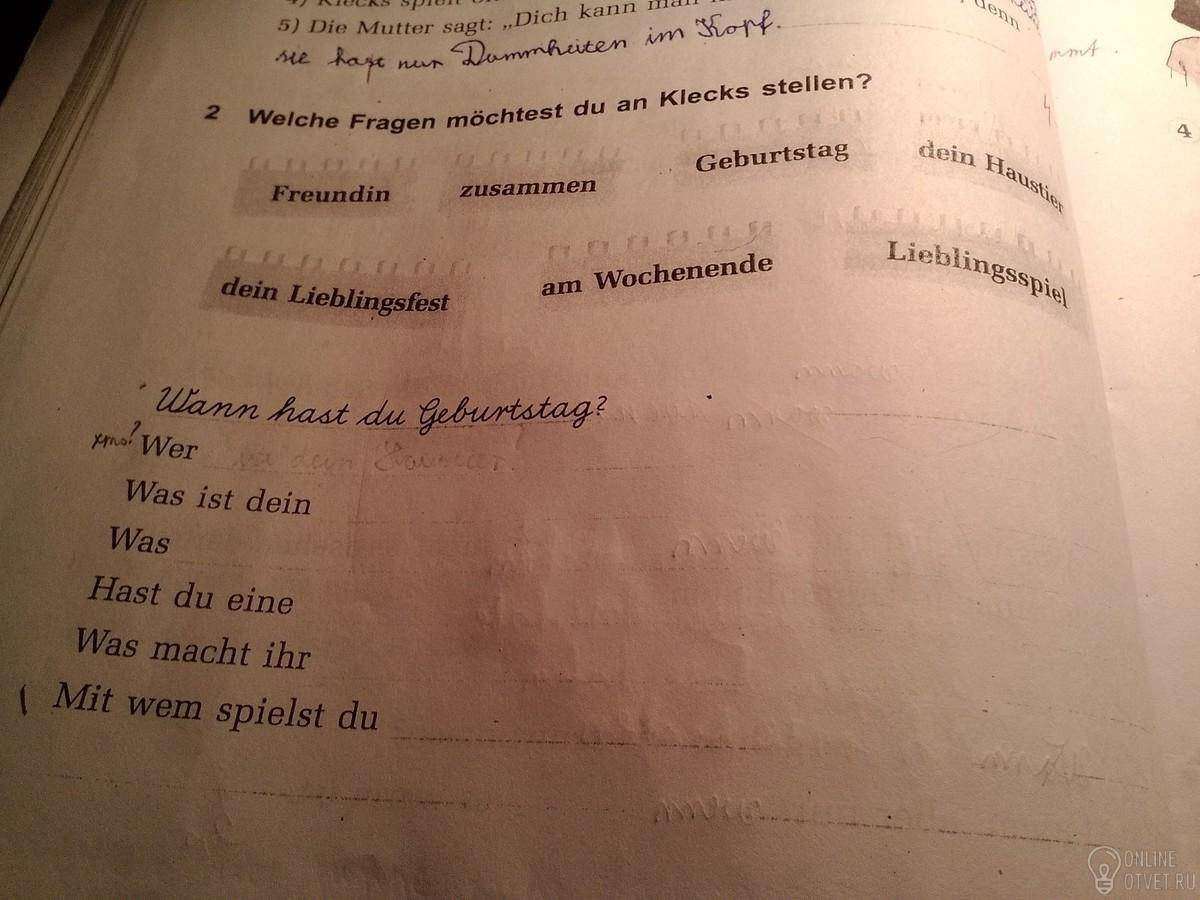 Klecks spielt
5) Die Mutter sagt: „Dich kann man
denn
sie hast nur Dummheiten im Kopf.
mmt.
2 Welche Fragen möchtest du an Klecks stellen?
4
Freundin zusammen Geburtstag dein Haustier
dein Lieblingsfest am Wochenende Lieblingsspiel
Wann hast du Geburtstag?
кто? Wer ist dein Haustier.
Was ist dein
Was
Hast du eine
Was macht ihr
Mit wem spielst du
ONLINE
OTVET.RU